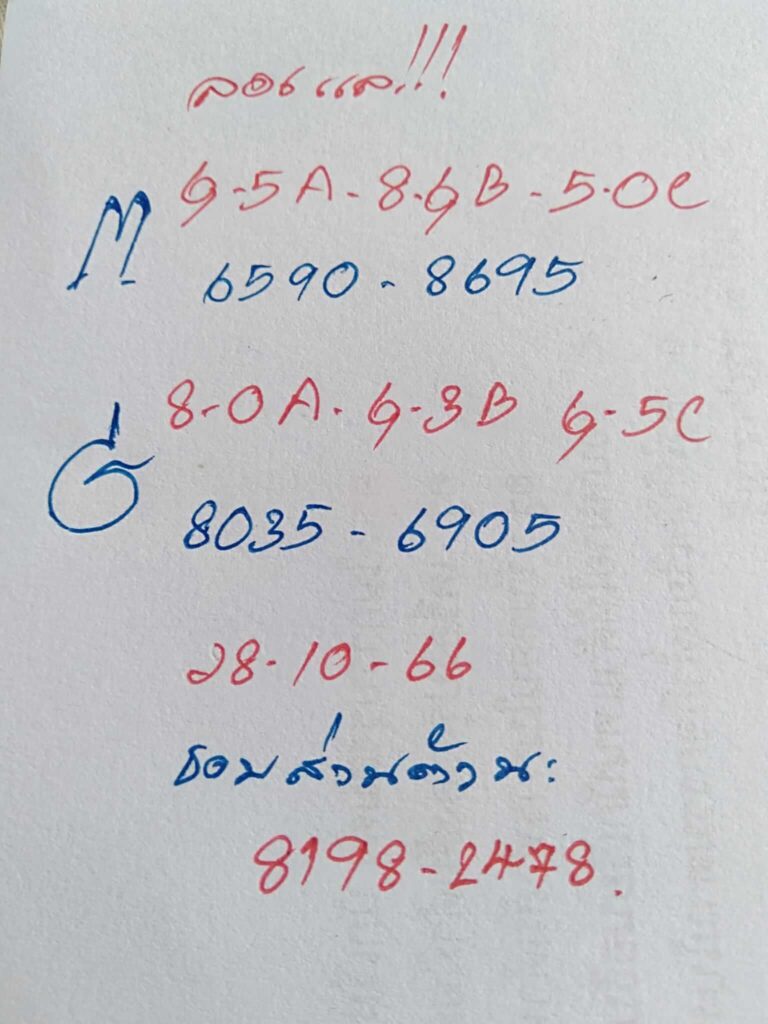 ลองแล!!!
ต 6-5A-8-6B-5-0C
6590-8695
8-0A-6-3B 6-5C
8035-6905
28-10-66
ชอบส่วนตัวนะ
8198-2478.